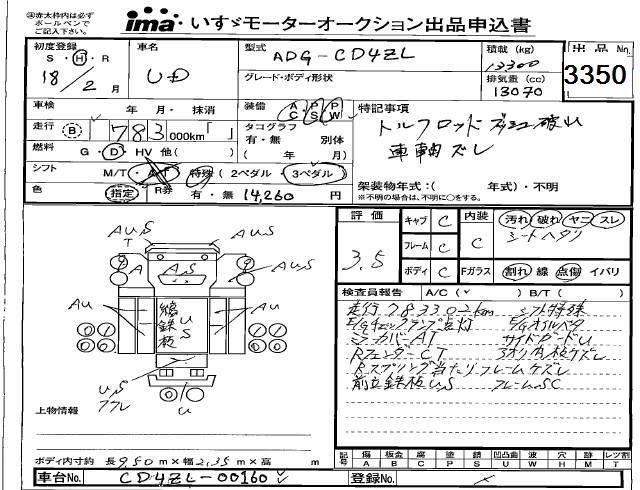 ㊟赤太枠内は必ず
ボールペンで
ご記入下さい。
ima いすゞモーターオークション出品申込書
初度登録 車名 型式 ADG-CD4ZL 積載(kg) 13300 出品No. 3350
S・H・R
18/2月 UD グレード・ボディ形状 排気量(cc) 13070
車検 年 月・抹消 装備 AC PS PW 特記事項
走行 (B) 783,000km「 」 タコグラフ 有・無 別体 トルフロッドブッシュ破れ
燃料 G・D・HV 他( ) ( 年 月) 車軸ズレ
シフト M/T・A/T 特殊 (2ペダル 3ペダル) 架装物年式:( 年式)・不明
色 指定 R券 有・無 14,260 円 ※不明の場合は、不明に○をする。
評価 3.5
キャブ C 内装 C 汚れ 破れ ヤニ スレ
フレーム C シートヘタリ
ボディ C Fガラス 割れ 線 点傷 イバリ
検査員報告 A/C( ) B/T( )
走行783302km シフト特殊
E/Gチェックランプ点灯
ミラーカバーAT サイドガードU
RフェンダーCT
Rスプリング当たりフレームケズレ
前立鉄板U,S フレームSC
AU,S
T
AUS
A
A,S
AUS
AU
縞鉄板
US
AU
U,S
アフレ
U
上物情報
ボディ内寸約 長9,50m×幅2,35m×高 m
記号 傷A 板金B 腐C 補P 塗S 錆 凹凸U 曲 波W 穴H 跡M レツ割T
車台No. CD4ZL-00160 登録No.